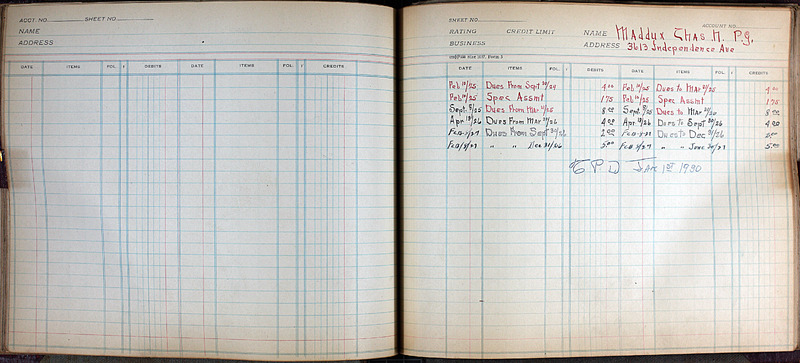 ACCT. NO. SHEET NO.
NAME
ADDRESS
DATE ITEMS FOL. DEBITS DATE ITEMS FOL. CREDITS
SHEET NO. ACCOUNT NO.
RATING CREDIT LIMIT NAME Maddux Chas. H. P.G.
BUSINESS ADDRESS 3613 Independence Ave
DATE ITEMS FOL. DEBITS DATE ITEMS FOL. CREDITS
Feb 10/25 Dues From Sept 30/24 4 00 Feb 10/25 Dues to Mar 31/25 4 00
Feb 10/25 Spec Assmt 1 75 Feb 10/25 Spec Assmt 1 75
Sept. 8/25 Dues From Mar 31/25 8 00 Sept. 8/25 Dues to Mar 31/26 8 00
Apr 19/26 Dues From Mar 31/26 4 00 Apr. 19/26 Dues to Sept 30/26 4 00
Dues From Sept 30/26 2 00 Dues to Dec 31/26
Feb 8/27 " " Dec 31/26 5 00 Feb 8/27 " " June 30/27 5 00
Jan 1st 1930